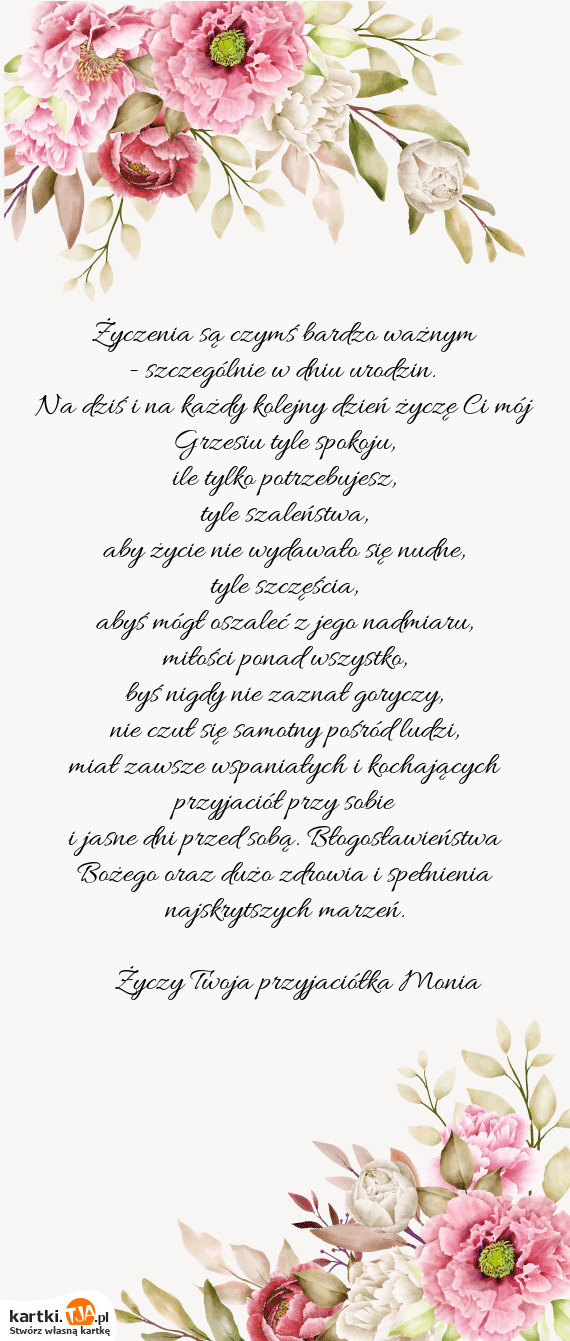 Życzenia są czymś bardzo ważnym
- szczególnie w dniu urodzin.
Na dziś i na każdy kolejny dzień życzę Ci mój
Grzesiu tyle spokoju,
ile tylko potrzebujesz,
tyle szaleństwa,
aby życie nie wydawało się nudne,
tyle szczęścia,
abyś mógł oszaleć z jego nadmiaru,
miłości ponad wszystko,
byś nigdy nie zaznał goryczy,
nie czuł się samotny pośród ludzi,
miał zawsze wspaniałych i kochających
przyjaciół przy sobie
i jasne dni przed sobą. Błogosławieństwa
Bożego oraz dużo zdrowia i spełnienia
najskrytszych marzeń.
Życzy Twoja przyjaciółka Monia
kartki.TJA.pl
Stwórz własną kartkę